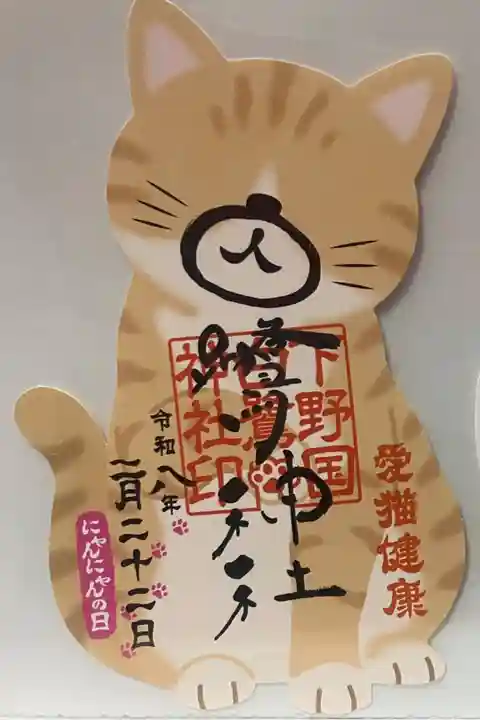 愛猫健康
下野国
白鷺
神社印
神社
令和八年
二月二十二日
にゃんにゃんの日